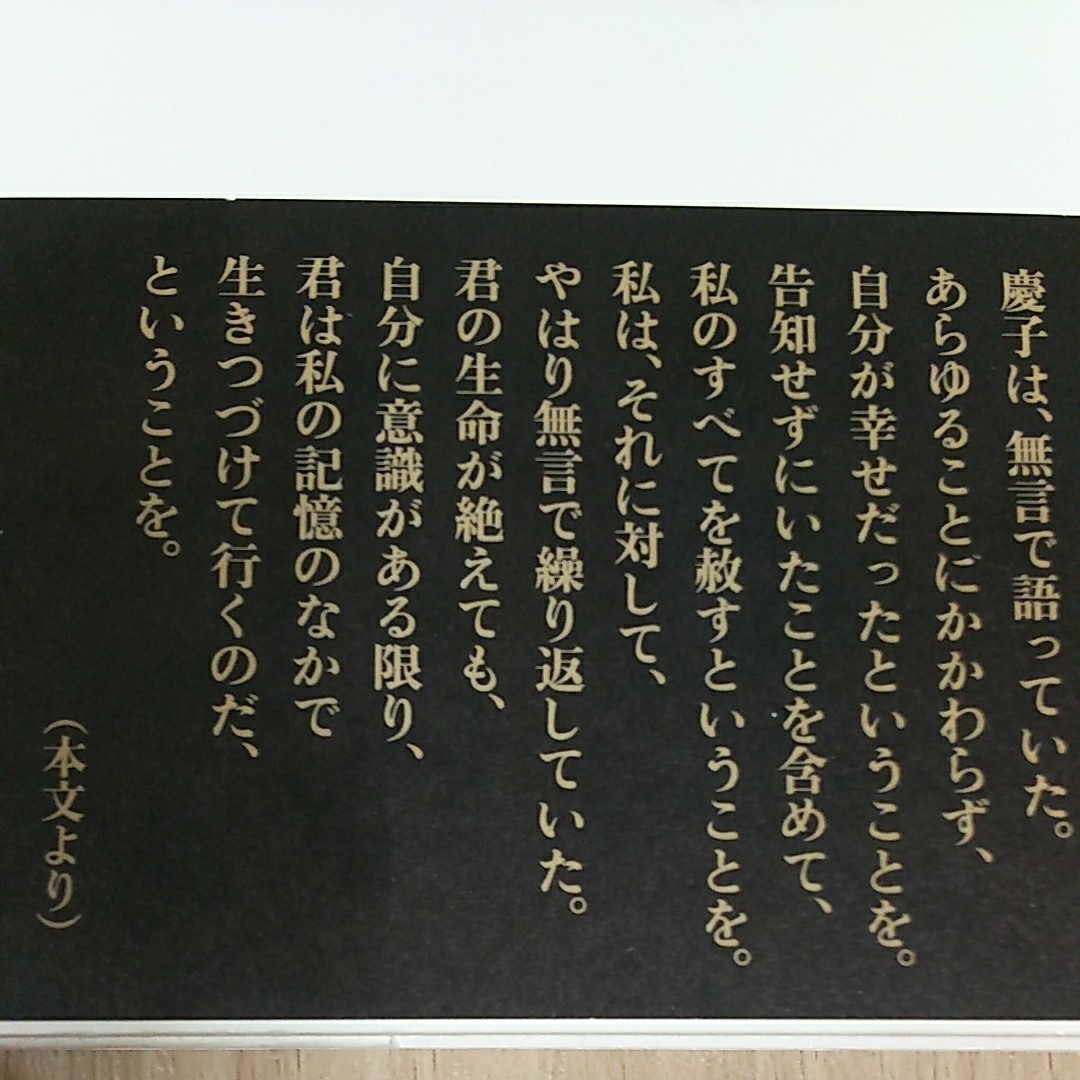 慶子は、無言で語っていた。
あらゆることにかかわらず、
自分が幸せだったということを。
告知せずにいたことを含めて、
私のすべてを赦すということを。
私は、それに対して、
やはり無言で繰り返していた。
君の生命が絶えても、
自分に意識がある限り、
君は私の記憶のなかで
生きつづけて行くのだ、
ということを。
（本文より）